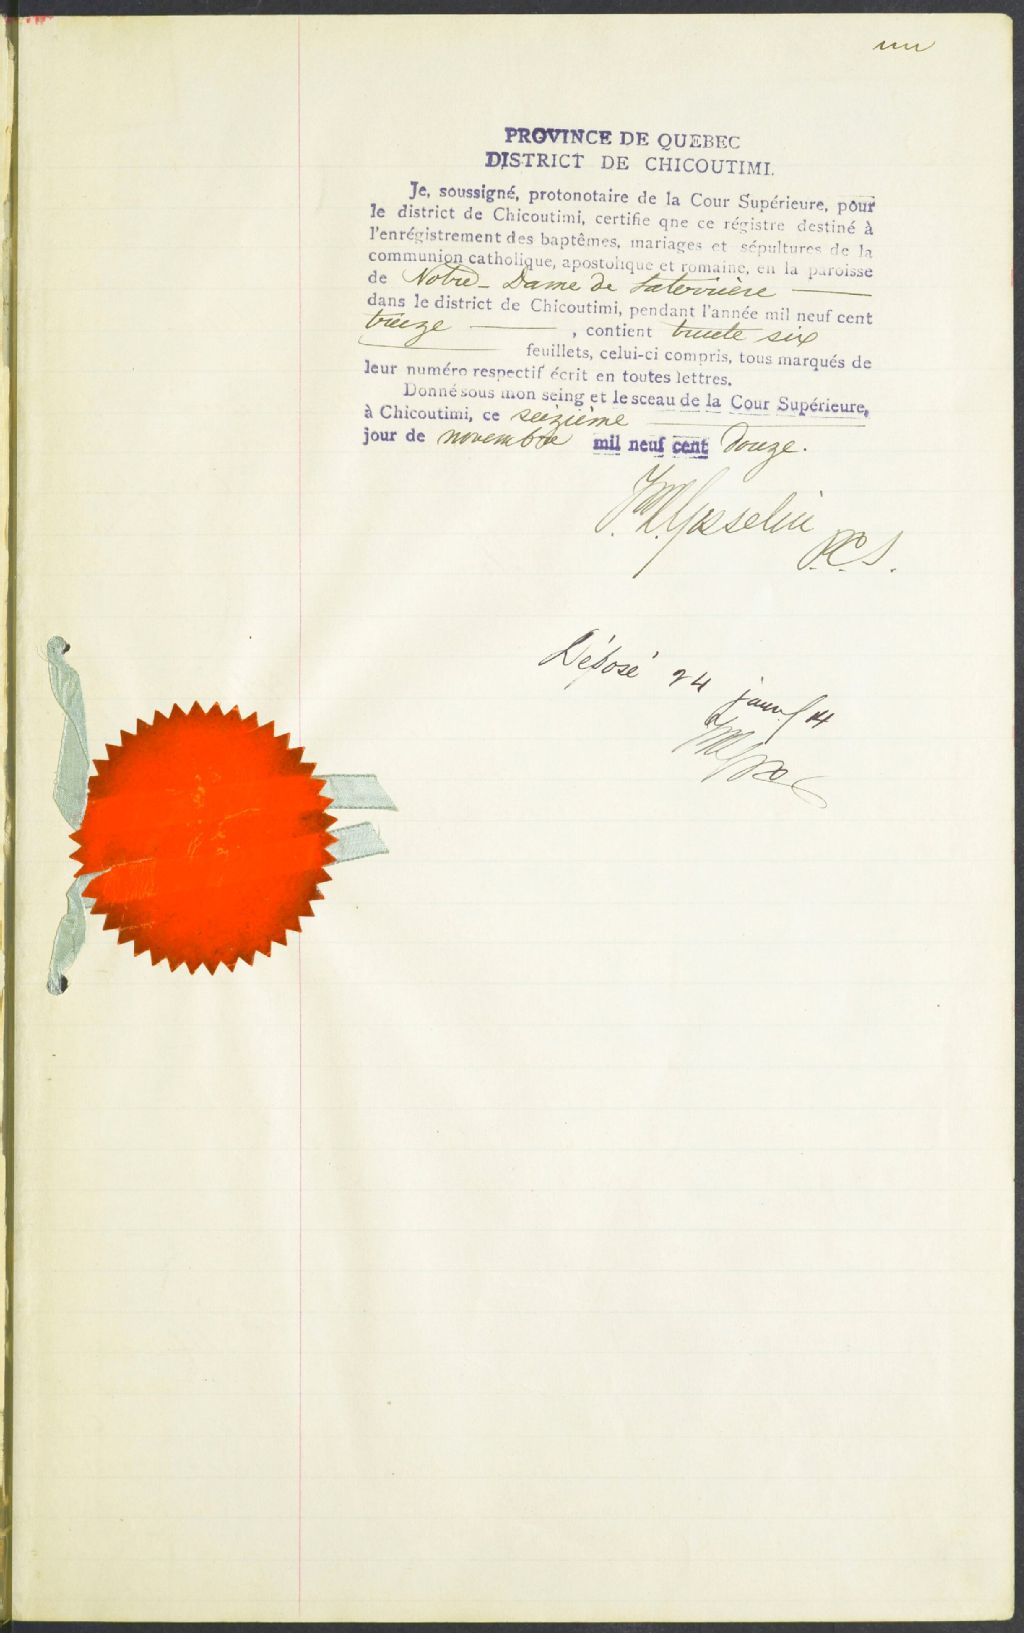 un
PROVINCE DE QUEBEC
DISTRICT DE CHICOUTIMI.
Je, soussigné, protonotaire de la Cour Supérieure, pour
le district de Chicoutimi, certifie qne ce régistre destiné à
l'enrégistrement des baptêmes, mariages et sépultures de la
communion catholique, apostolique et romaine, en la paroisse
de Notre-Dame de Laterrière
dans le district de Chicoutimi, pendant l'année mil neuf cent
treize, contient trente six
feuillets, celui-ci compris, tous marqués de
leur numéro respectif écrit en toutes lettres.
Donné sous mon seing et le sceau de la Cour Supérieure,
à Chicoutimi, ce seizième
jour de novembre mil neuf cent Douze.
Gosselin
P.C.S.
Déposé 24 janv. 14